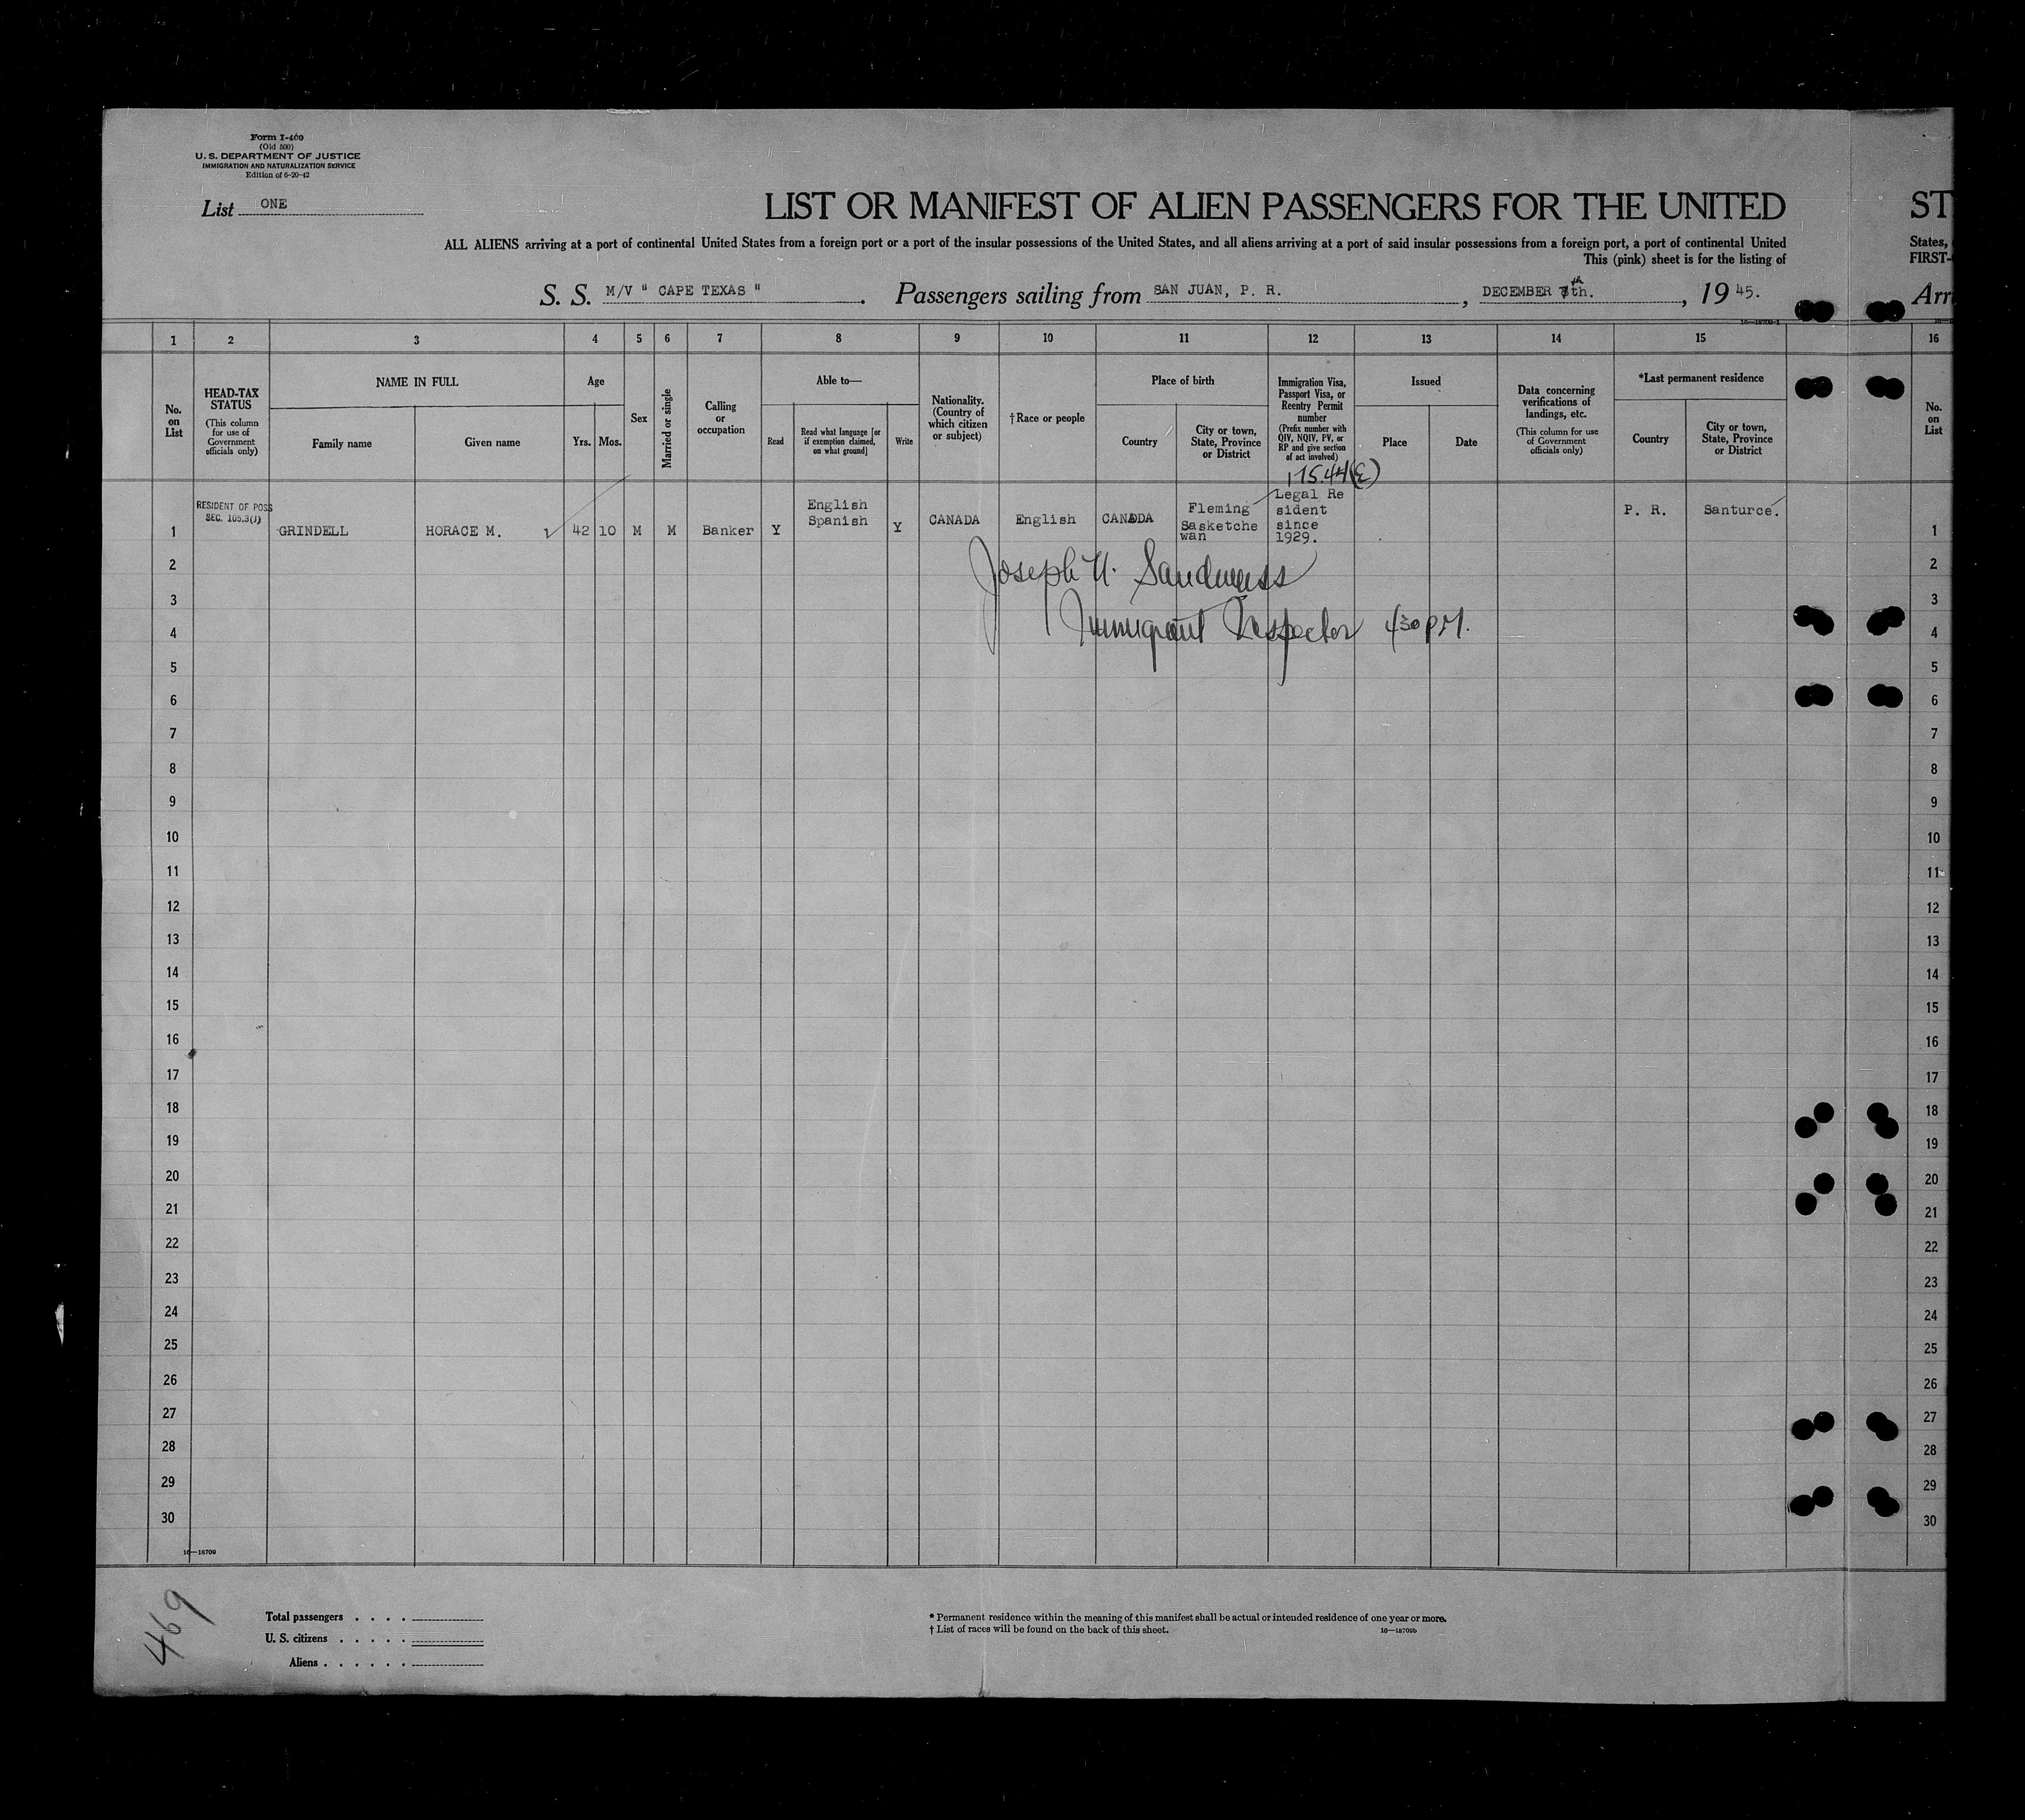 Form I-460
(Old 500)
U. S. DEPARTMENT OF JUSTICE
IMMIGRATION AND NATURALIZATION SERVICE
Edition of 6-20-42
List ONE
LIST OR MANIFEST OF ALIEN PASSENGERS FOR THE UNITED ST
ALL ALIENS arriving at a port of continental United States from a foreign port or a port of the insular possessions of the United States, and all aliens arriving at a port of said insular possessions from a foreign port, a port of continental United States,
This (pink) sheet is for the listing of FIRST-
S. S. M/V " CAPE TEXAS ". Passengers sailing from SAN JUAN, P. R., DECEMBER 7th., 19 45. Arr
16—18709-1
1 2 3 4 5 6 7 8 9 10 11 12 13 14 15 16
No. on List
HEAD-TAX STATUS
(This column for use of Government officials only)
NAME IN FULL
Family name
Given name
Age
Yrs. Mos.
Sex
Married or single
Calling or occupation
Able to—
Read
Read what language [or if exemption claimed, on what ground]
Write
Nationality. (Country of which citizen or subject)
†Race or people
Place of birth
Country
City or town, State, Province or District
Immigration Visa, Passport Visa, or Reentry Permit number
(Prefix number with QIV, NQIV, PV, or RP and give section of act involved)
Issued
Place
Date
Data concerning verifications of landings, etc.
(This column for use of Government officials only)
*Last permanent residence
Country
City or town, State, Province or District
No. on List
175.44(E)
RESIDENT OF POSS
SEC. 105.3(J)
1 GRINDELL HORACE M. 42 10 M M Banker Y English Spanish Y CANADA English CANADA Fleming Sasketche wan Legal Re sident since 1929. P. R. Santurce. 1
2 Joseph 2
3 3
4 Immigrant Inspector 430 P.M. 4
5 5
6 6
7 7
8 8
9 9
10 10
11 11
12 12
13 13
14 14
15 15
16 16
17 17
18 18
19 19
20 20
21 21
22 22
23 23
24 24
25 25
26 26
27 27
28 28
29 29
30 30
16—18709
469
Total passengers . . . .
U. S. citizens . . . . .
Aliens . . . . . .
* Permanent residence within the meaning of this manifest shall be actual or intended residence of one year or more.
† List of races will be found on the back of this sheet.
16—18709b